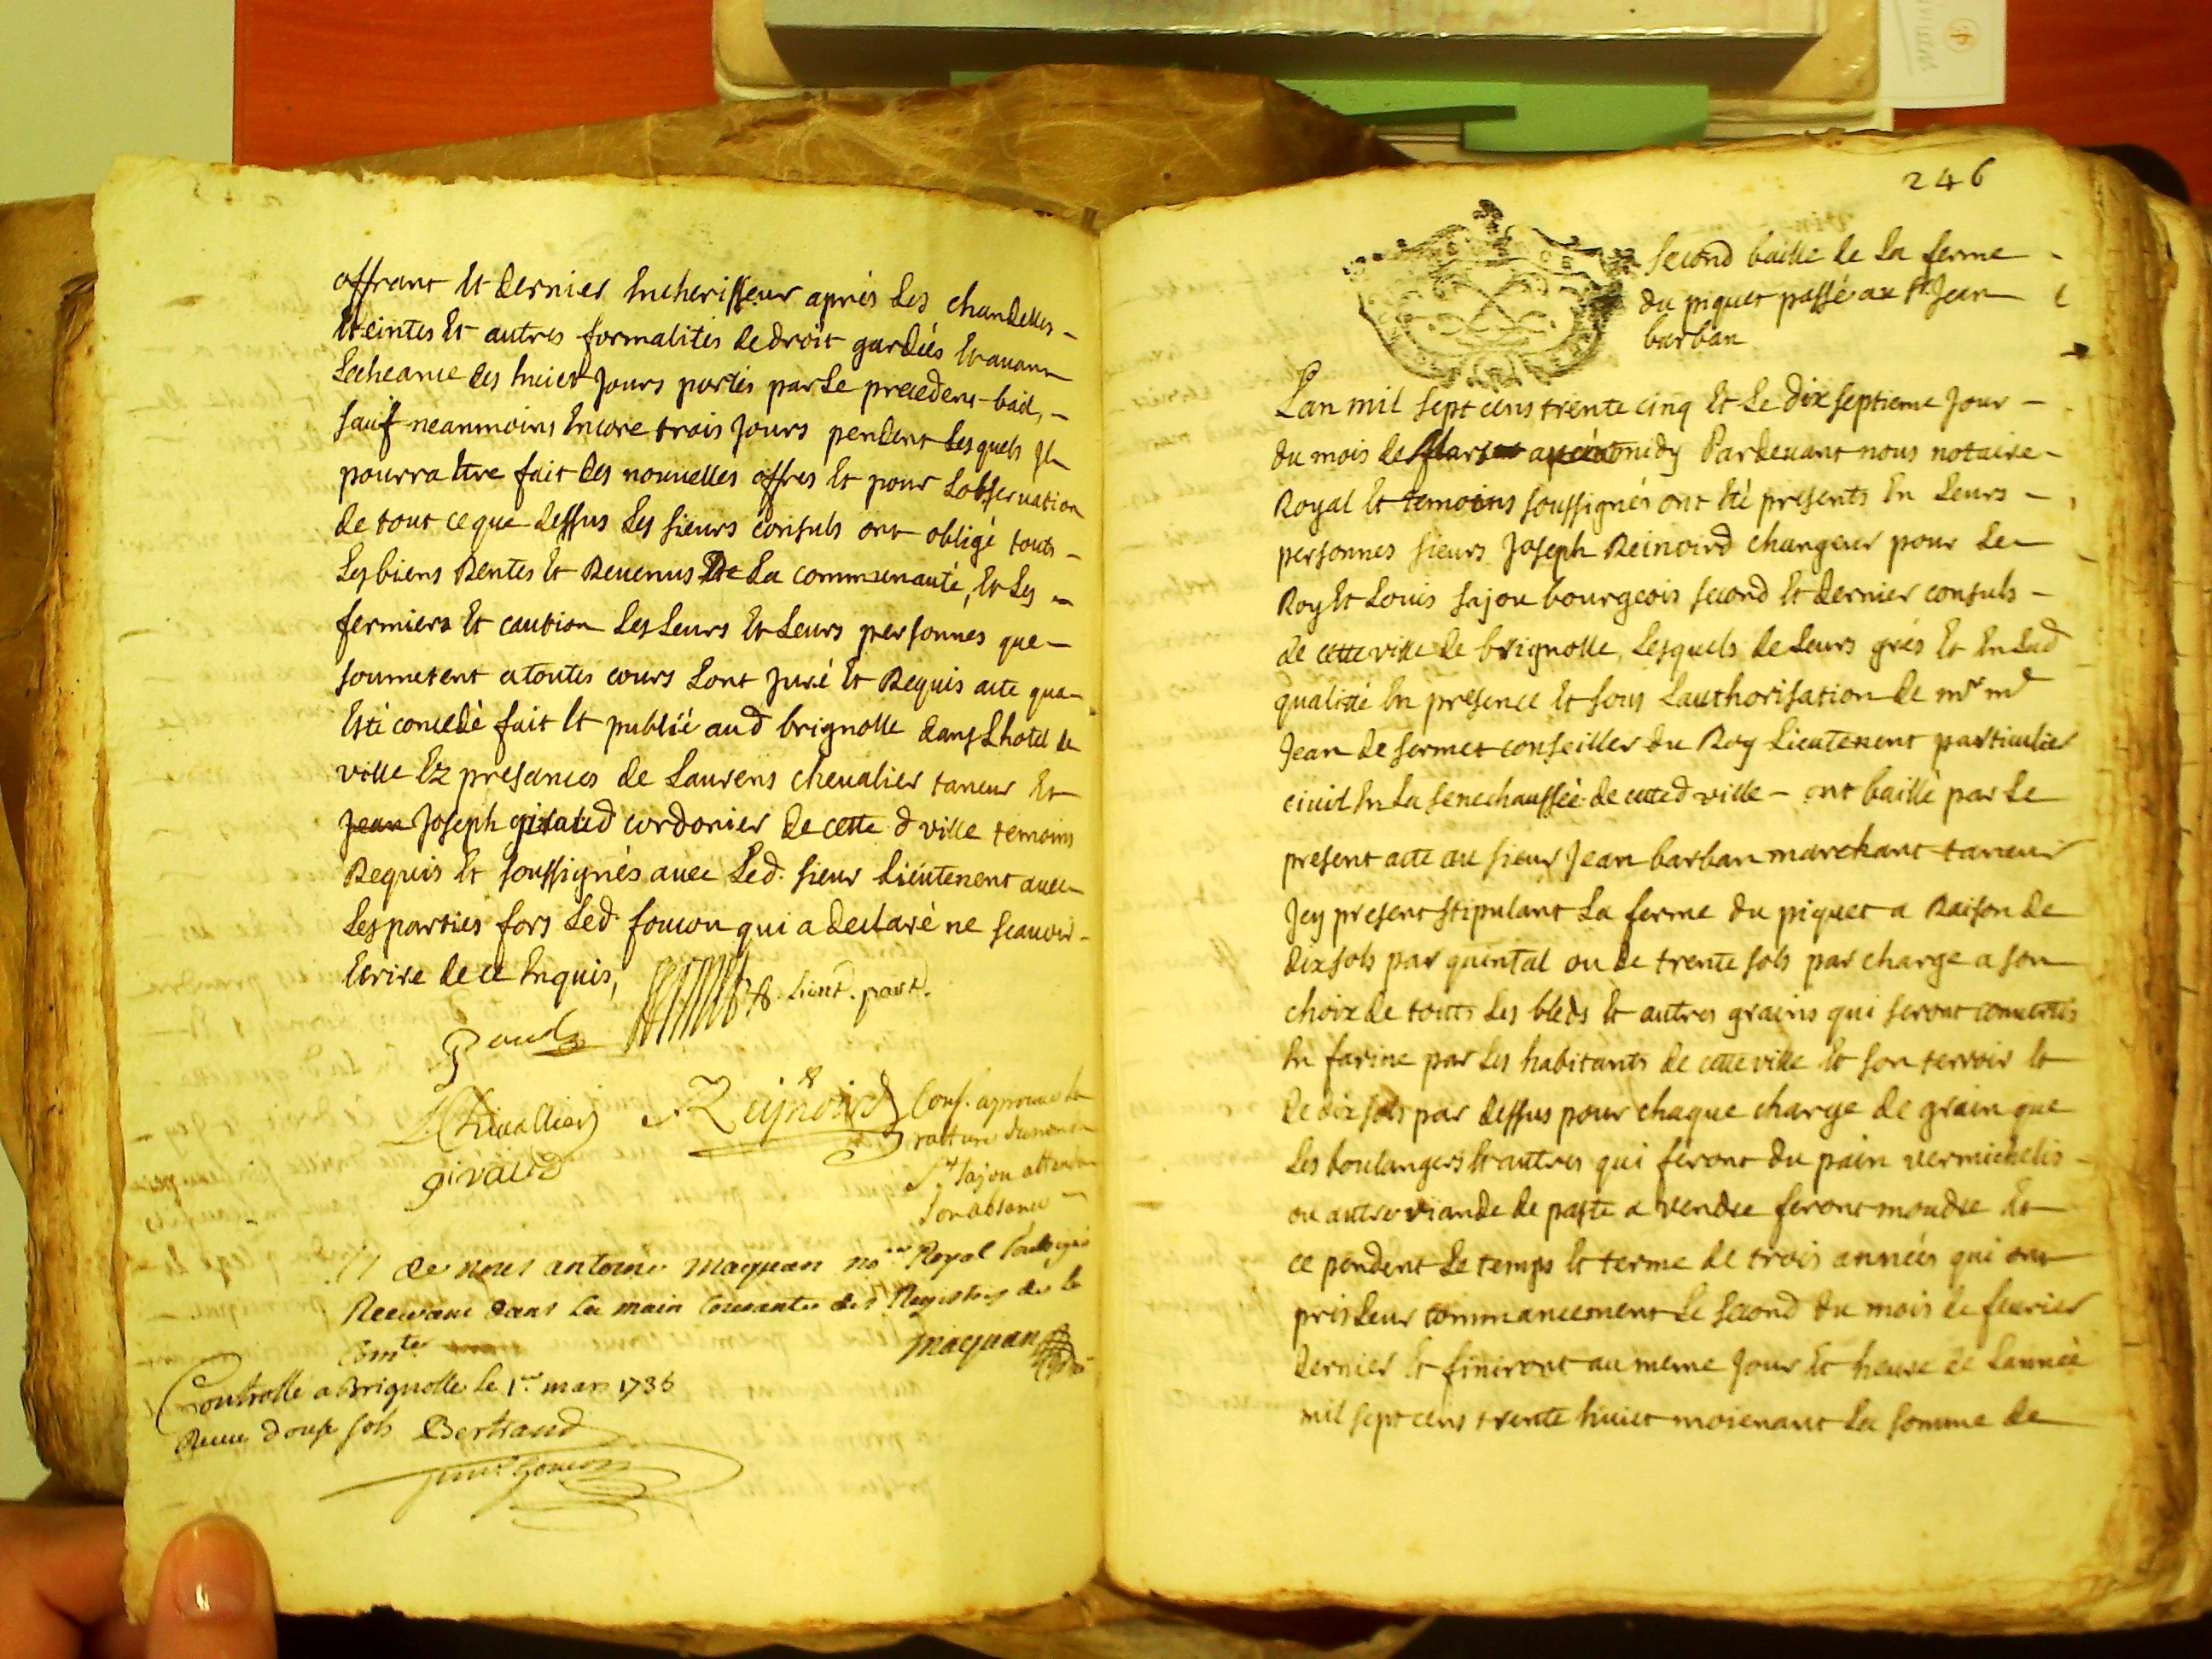 offrant Et dernier Encherisseur aprés Les chandelles
Eteintes Et autres formalités de droit gardées Et avant
Lecheance des huict Jours portés par Le precedent bail,
sauf neanmoins Encore trois Jours pendent Lesquels Il
pourra Etre fait des nouvelles offres Et pour Lobservation
de tout ce que dessus Les sieurs consuls ont obligé touts
Les biens Rentes Et Revenus De La communauté, Et Les
fermiers Et caution Les Leurs Et Leurs personnes que
soumetent a toutes cours Lont Juré Et Requis acte qua
Esté concedé fait Et publié aud brignolle dans Lhotel de
ville Ez presances de Laurens chevalier taneur Et
Jean Joseph giraud cordonier de cette d ville temoins
Requis Et soussignés avec Led. sieur Lieutenent avec
Les parties fors Led. foucou qui a declaré ne scauoir
Ecrire de ce Enquis,
Lieut. part.
L Chivallier Reynoird Cons. aprouve la
rature du nom
giraud
Sr Sajou attendu
son absance
Et de nous antoine maquan nore Royal soubsigné
Recevant dans La main courante des Registres de la
Comte
maquan
Controllé a Brignolle le 1er mars 1735
Receu douse sols Bertrand
246
Second baille de La ferme
du piquet passé au sr Jean
barban
Lan mil sept cens trente cinq Et Le dix septieme Jour
du mois de Mars avant midy Pardevant nous notaire
Royal Et temoins soussignés ont Eté presents En Leurs
personnes sieurs Joseph Reinoird changeur pour Le
Roy Et Louis sajou bourgeois second Et dernier consuls
de cette ville de brignolle, Lesquels de Leurs grés Et En Lad
qualité En presence Et sous Lauthorisation de mr me
Jean de sermet conseiller du Roy Lieutenent particulier
civil En La senechaussée de cette d ville - ont baillé par Le
present acte au sieur Jean barban marchant taneur
Icy present stipulant La ferme du piquet a Raison de
dix sols par quintal ou de trente sols par charge a son
choix de touts Les bleds Et autres grains qui seront convertis
En farine par Les habitants de cette ville Et son terroir Et
de dix sols par dessus pour chaque charge de grain que
Les boulangers Et autres qui feront du pain vermichelis
ou autre viande de paste a vendre feront moudre Et
ce pendent Le temps Et terme de trois années qui ont
pris Leur commancement Le second du mois de fevrier
dernier Et finiront au meme Jour Et heure de Lannée
mil sept cens trente huict moienant La somme de